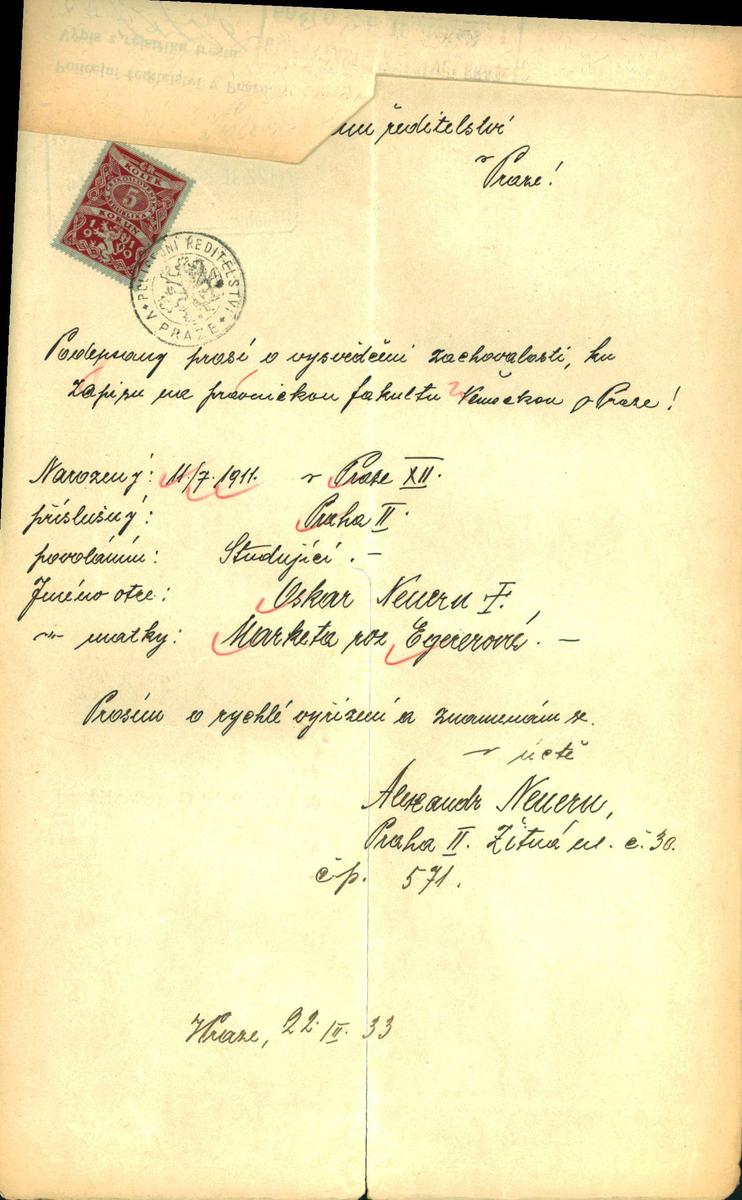 ředitelství
v
Praze!
ČS.
KOLEK
ČESKOSLOVENSKÁ
5
REPUBLIKA
KORUN
1919
POLICEJNÍ ŘEDITELSTVÍ
V PRAZE
Podepsaný prosí o vysvědčení zachovalosti, ku
zápisu na právnickou fakultu Německou v Praze!
Narozený: 11/7. 1911. v Praze XII.
příslušný: Praha II.
povoláním: Studující. –
Jméno otce: Oskar Neuern †.
-"- matky: Marketa roz. Egererová. –
Prosím o rychlé vyřízení a znamenám se.
v úctě
Alexandr Neuern,
Praha II. Žitná ul. č. 30.
čp. 571.
V Praze, 22. II. 33